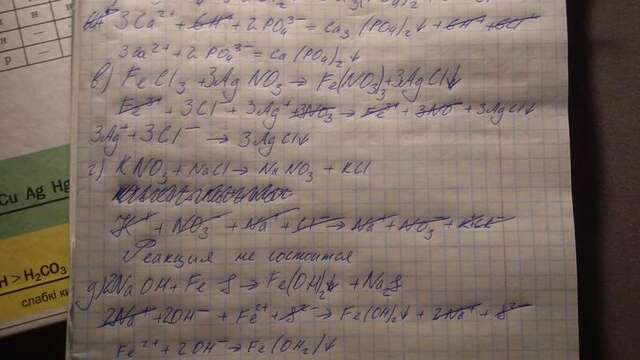 3Ca²⁺ + 6H⁺ + 2PO₄³⁻ = Ca₃(PO₄)₂↓ + 6H⁺ + 6Cl⁻
3Ca²⁺ + 2PO₄³⁻ = Ca(PO₄)₂↓
в) FeCl3 + 3AgNO3 → Fe(NO3)3 + 3AgCl↓
Fe³⁺ + 3Cl⁻ + 3Ag⁺ + 3NO3⁻ → Fe³⁺ + 3NO⁻ + 3AgCl↓
3Ag⁺ + 3Cl⁻ → 3AgCl↓
г) KNO3 + NaCl → NaNO3 + KCl
K⁺ + NO3⁻ + Na⁺ + Cl⁻ → Na⁺ + NO3⁻ + KCl
Реакция не состоится
д) 2NaOH + FeS → Fe(OH)₂↓ + Na₂S
2Na⁺ + 2OH⁻ + Fe²⁺ + S²⁻ → Fe(OH)₂↓ + 2Na⁺ + S²⁻
Fe²⁺ + 2OH⁻ → Fe(OH₂)↓
Cu Ag Hg
H > H₂CO₃
слабкі ки